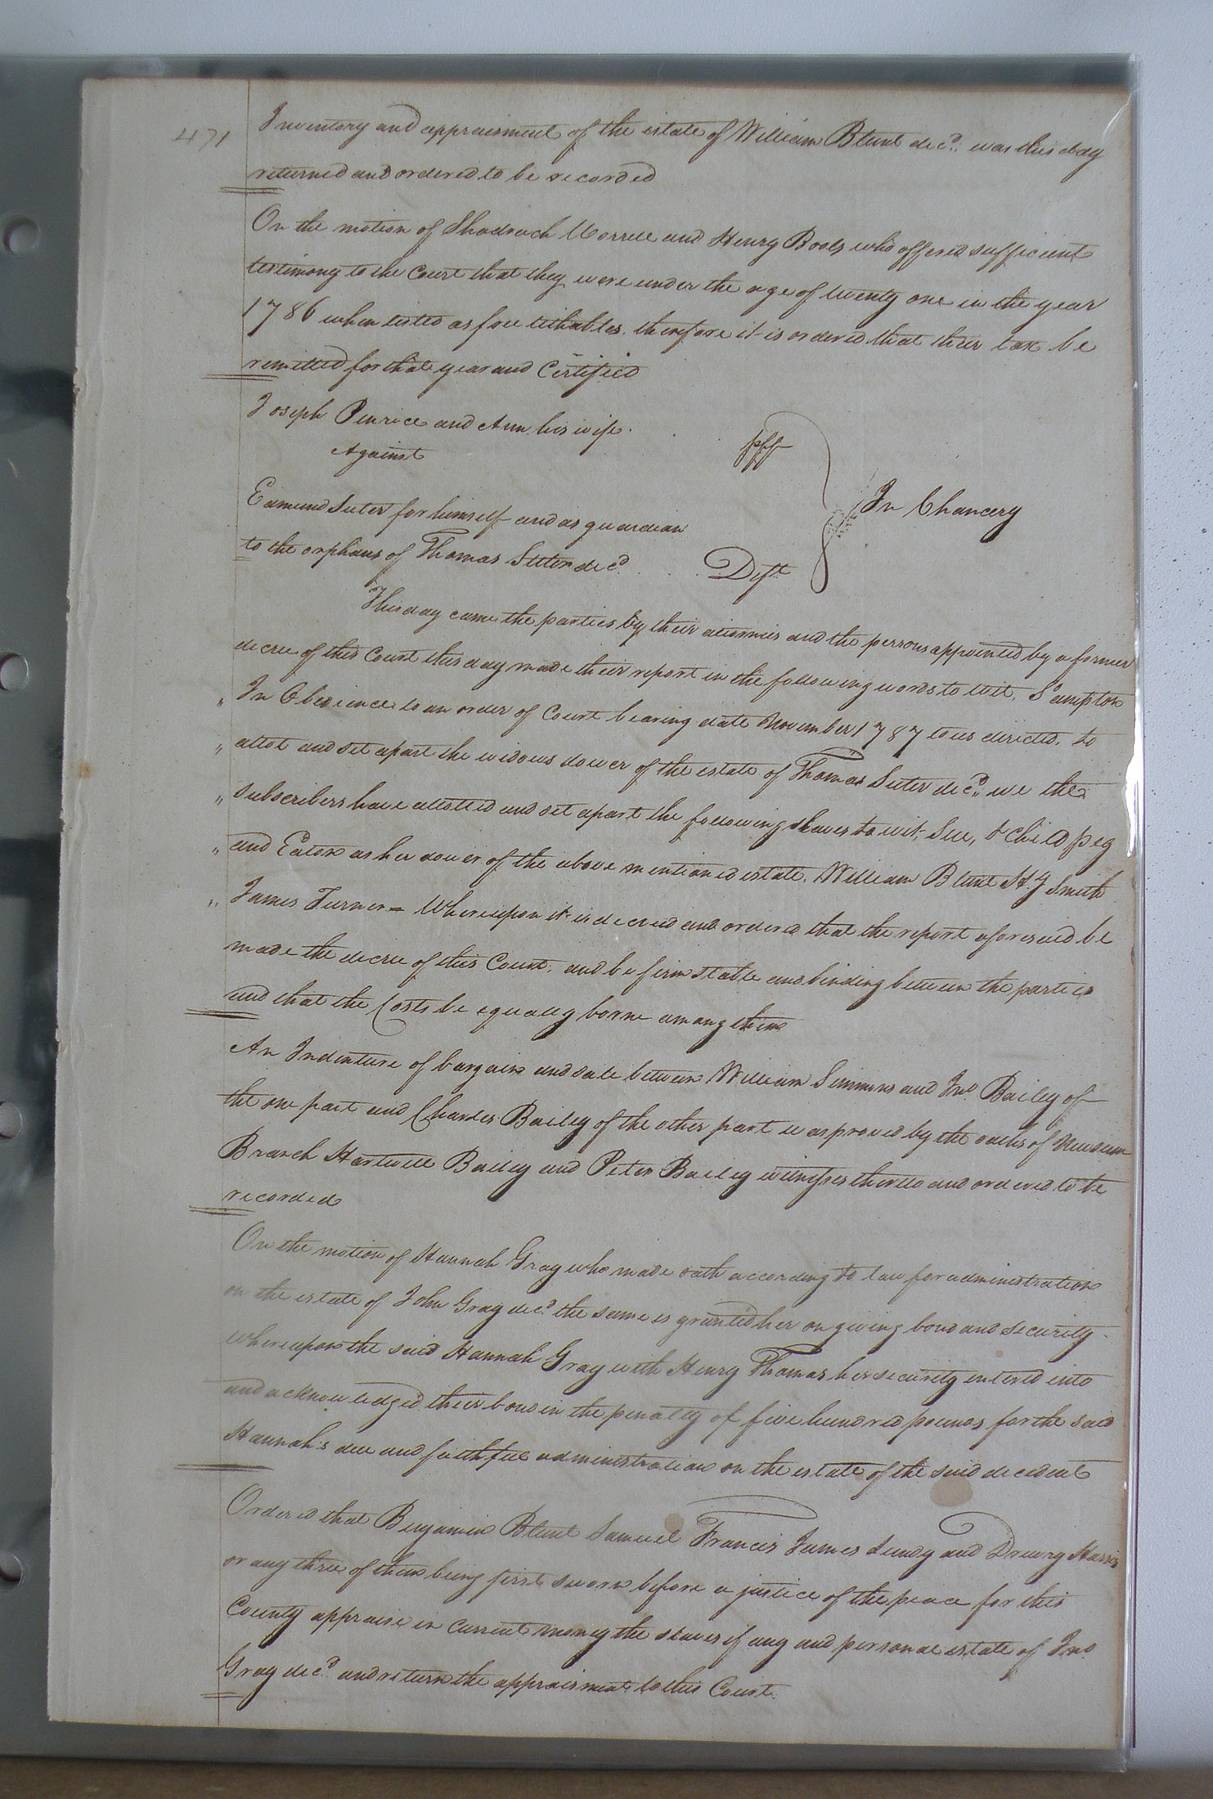 471
Inventory and appraisment of the estate of William Blunt decd. was this day
returned and ordered to be recorded
On the motion of Shadrach Worrell and Henry Booth who offered sufficient
testimony to the Court that they were under the age of twenty one in the year
1786 when listed as free tithables, therefore it is ordered that their tax be
remitted for that year and Certified
Joseph Penrice and Ann his wife
plff
Against
In Chancery
Edmund Suter for himself and as guardian
to the orphans of Thomas Suter decd.
Deft
This day came the parties by their attornies and the persons appointed by a former
decree of this Court this day made their report in the following words to wit,
" In Obedience to an order of Court bearing date November 1787 to us directed, to
" allot and set apart the widows dower of the estate of Thomas Suter decd., we the
" subscribers have allotted and set apart the following slaves to wit, Sue, & Child Peg
" and Eaton as her dower of the above mentioned estate. William Blunt Smith
" James Turner = Whereupon it is decreed and ordered that the report aforesaid be
made the decree of this Court, and be firm stable and binding between the parties
and that the Costs be equally borne among them
An Indenture of bargain and sale between William Simmons and Jno Bailey of
the one part and Charles Bailey of the other part was proved by the oaths of Newsum
Branch Hartwell Bailey and Peter Bailey witnesses thereto and ordered to be
recorded
On the motion of Hannah Gray who made oath according to law for administration
on the estate of John Gray decd. the same is granted her on giving bond and security
whereupon the said Hannah Gray with Henry Thomas her security entered into
and acknowledged their bond in the penalty of five hundred pounds for the said
Hannah's due and faithful administration on the estate of the said decedent
Ordered that Benjamin Blunt Samuel Francis James Lundy and Drewry Harris
or any three of them being first sworn before a justice of the peace for this
County appraise in current money the slaves if any and personal estate of Jno
Gray decd. and return the appraisment to this Court.